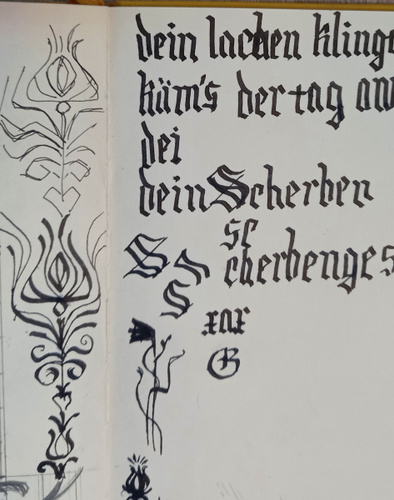 dein lachen klinge
käm's der tag an
dei
dein Scherben
sc
S S cherbenges
S
xax
G